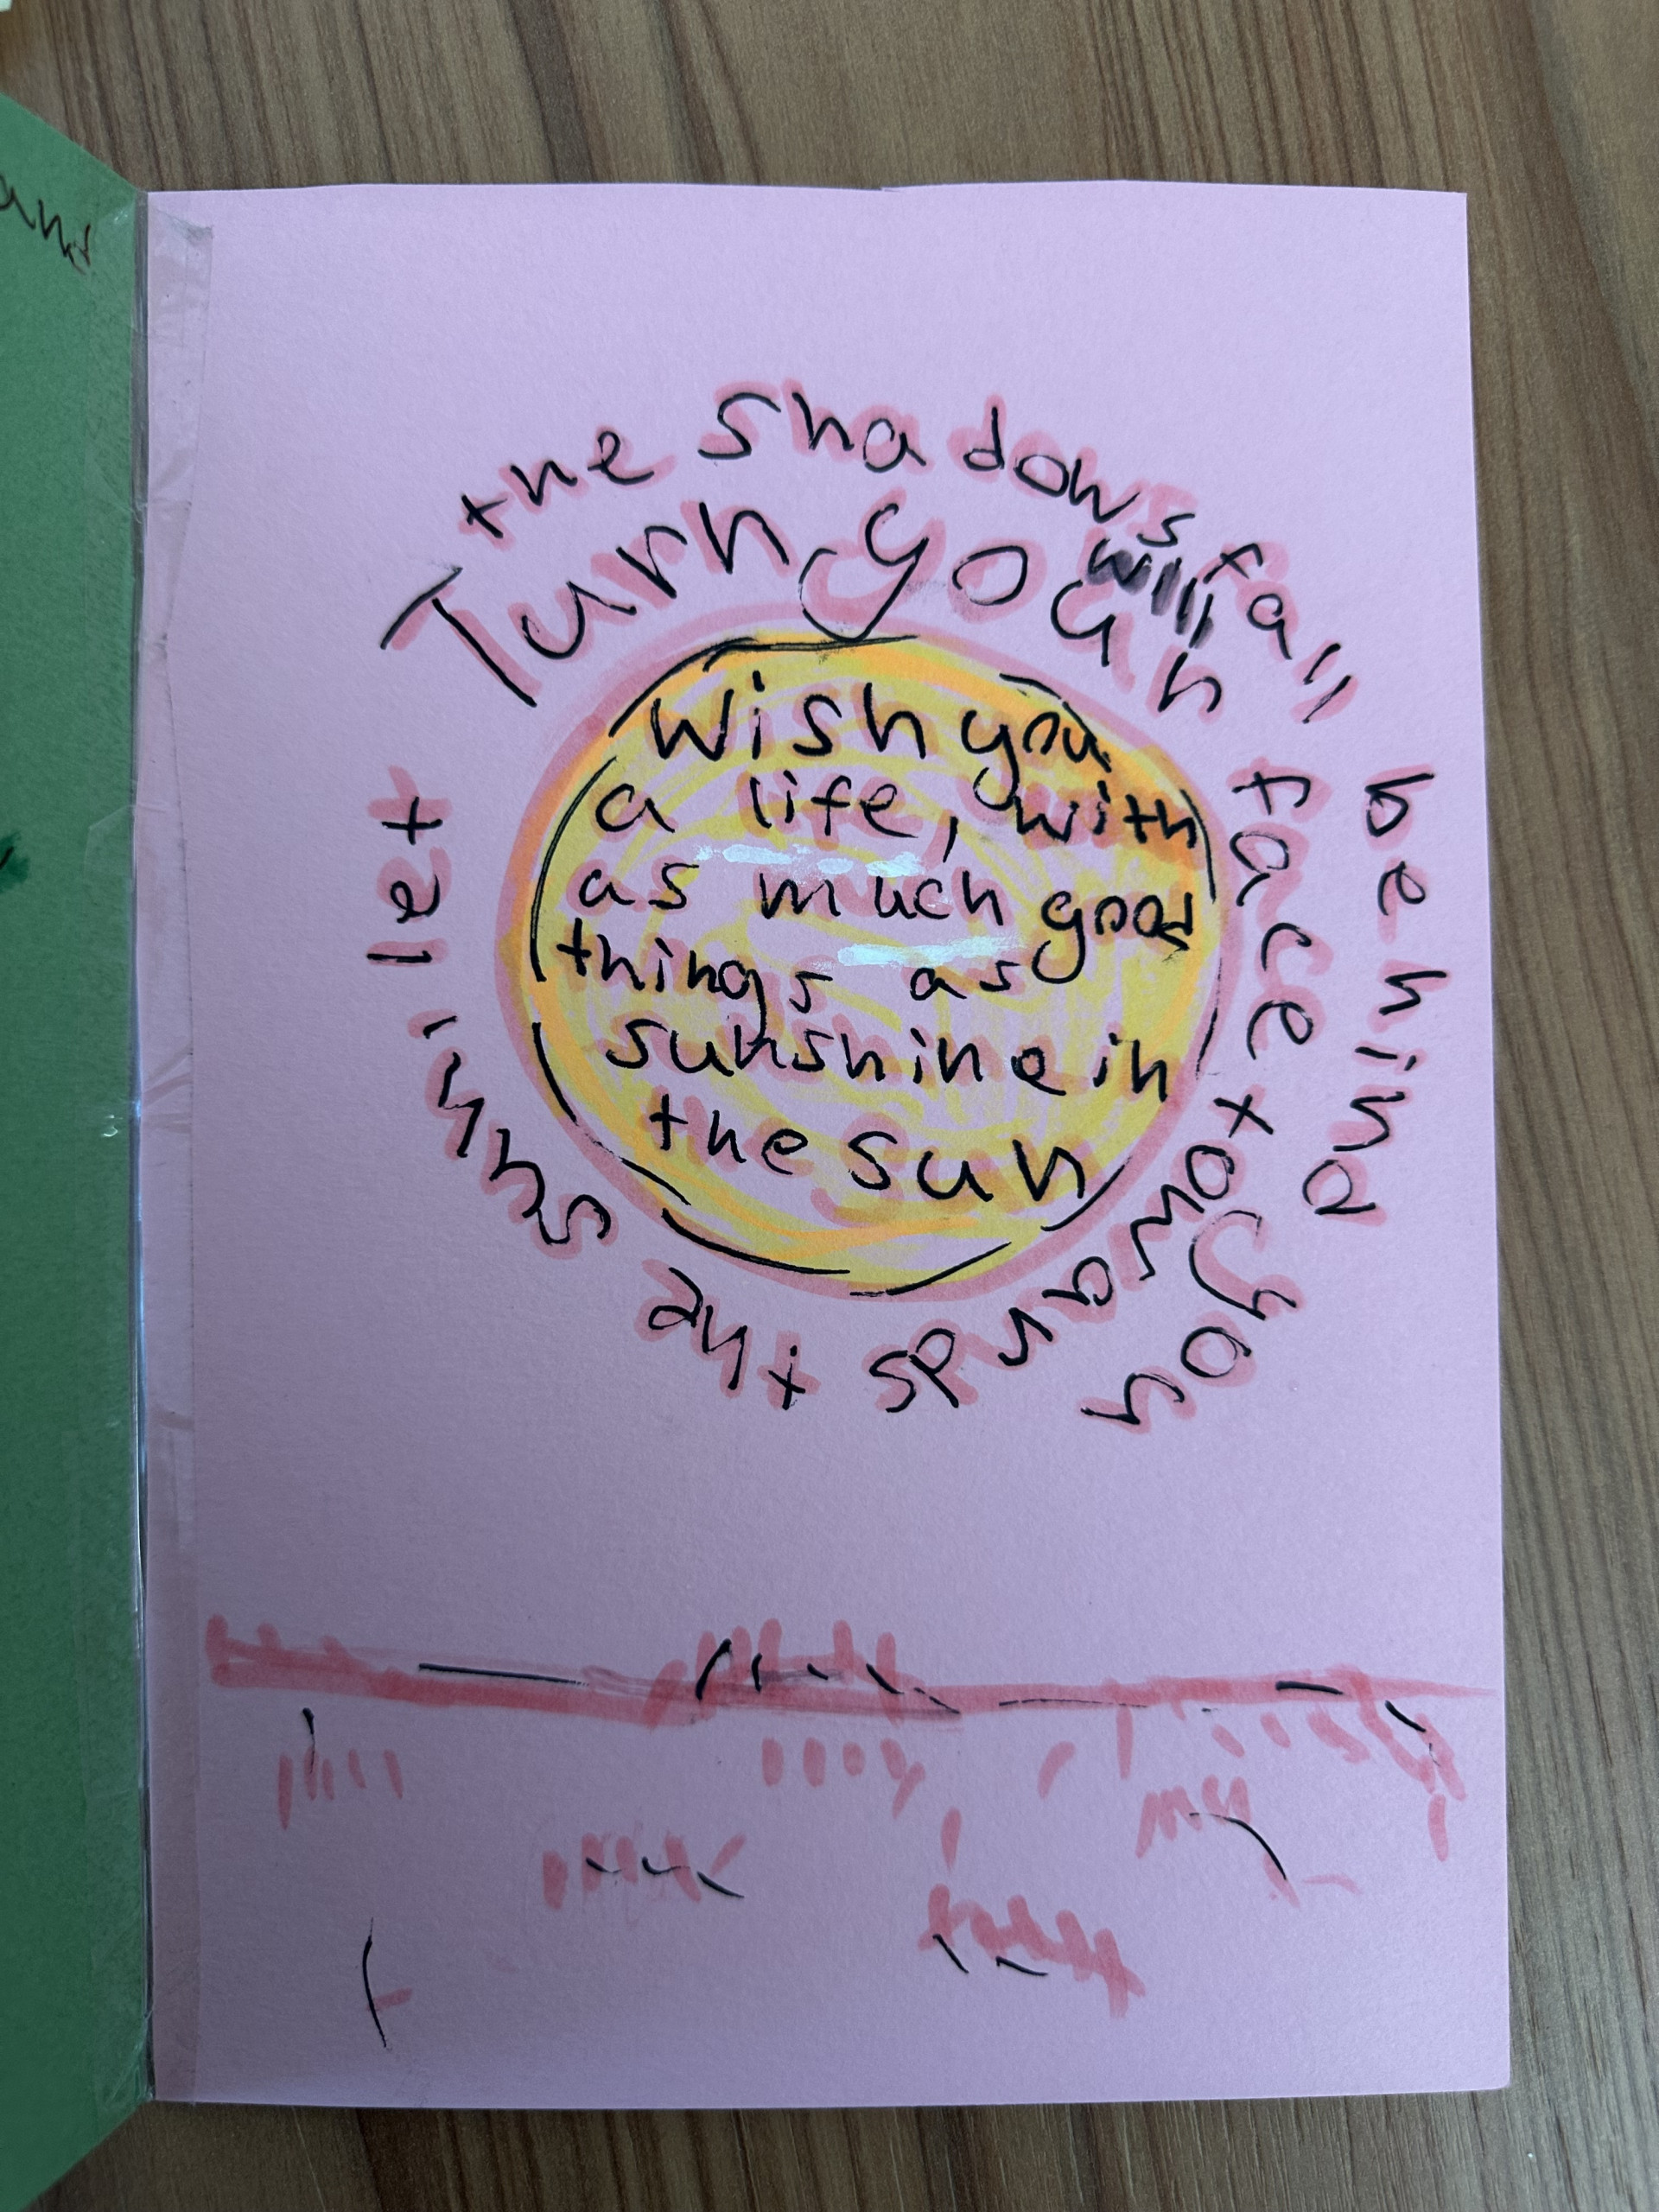 Turn your face towards the sun, let
the shadows fall behind you
wish you
a life, with
as much good
things as
sunshine in
the sun